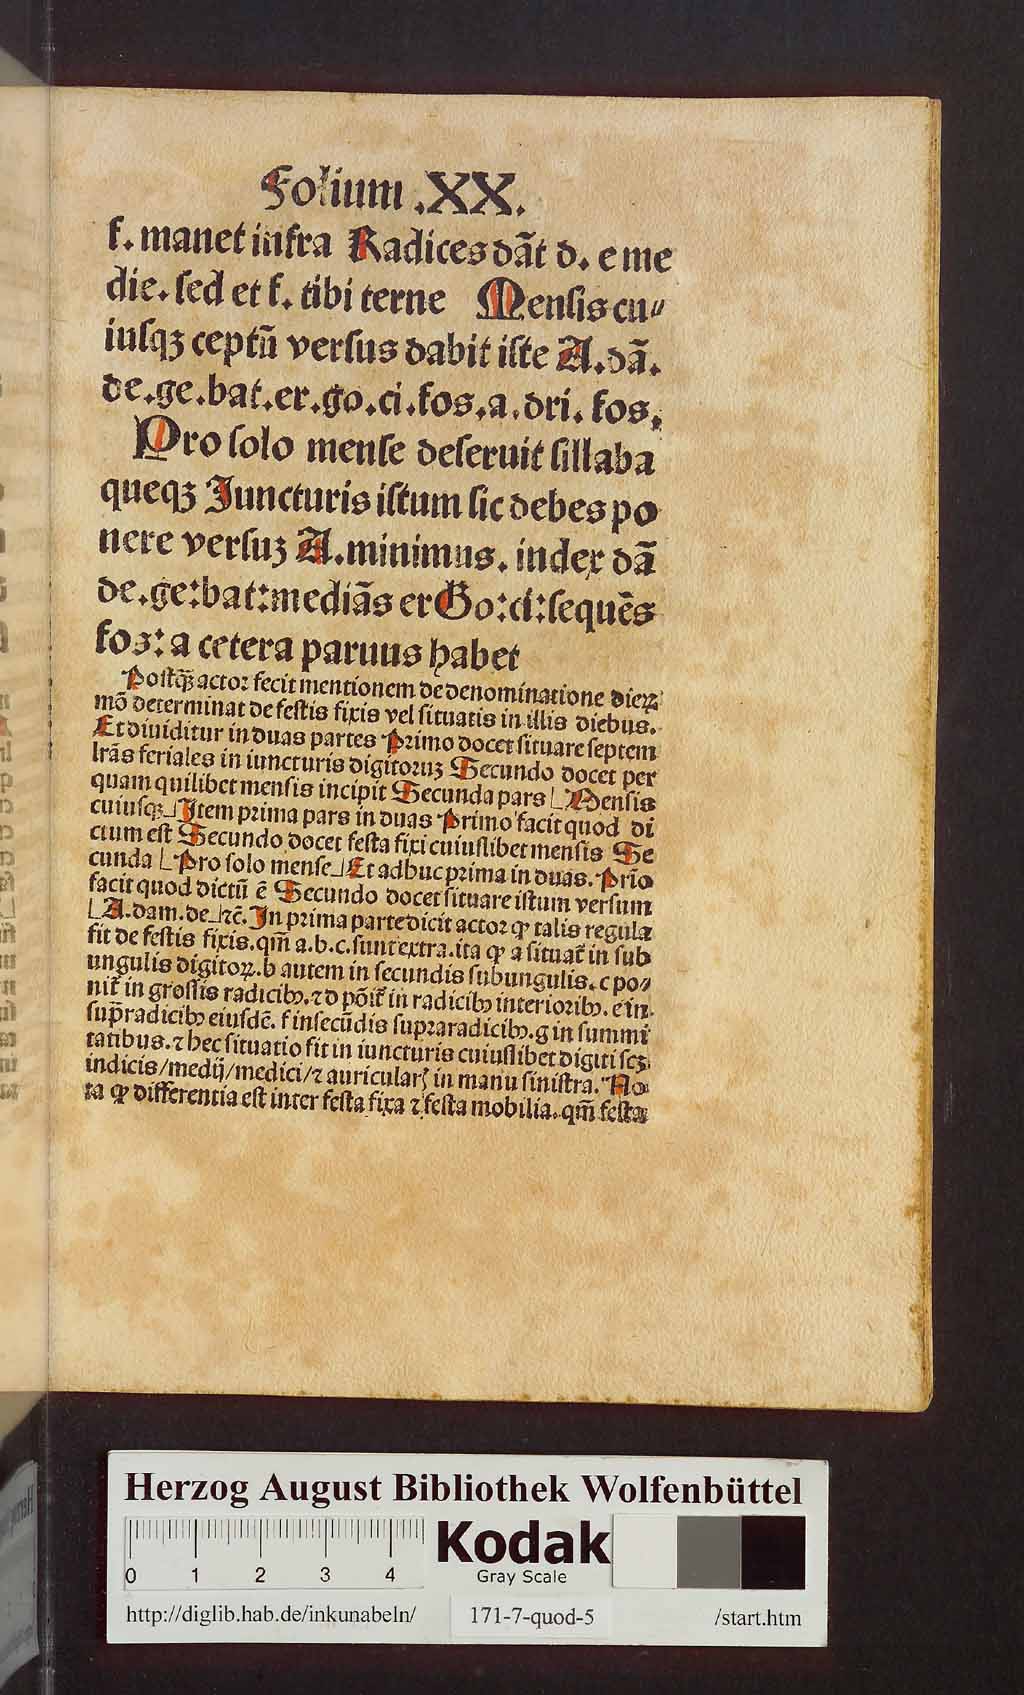 Folium .XX.
f. manet infra Radices dāt d. e me
die. ſed et f. tibi terne Menſis cu⸗
iuſqꝫ ceptū verſus dabit iſte A.dā.
de.ge.bat.er.go.ci.fos.a.dri.fos.
Pro ſolo menſe deſeruit ſillaba
queqꝫ Iuncturis iſtum ſic debes po
nere verſuꝫ A.minimus. index dā
de.ge:bat:mediās er Go:ci:ſequēs
fos: a cetera paruus habet
Poſtqꝫ̄ actoꝛ fecit mentionem de denominatione dieꝝ
mō determinat de feſtis fixis vel ſituatis in illis diebus.
Et diuiditur in duas partes Pꝛimo docet ſituare ſeptem
lrās feriales in iuncturis digitoꝛuꝫ Secundo docet per
quam quilibet menſis incipit Secunda pars ⌊Menſis
cuiuſqꝫ⌋ Item pꝛima pars in duas Pꝛimo facit quod di
ctum eſt Secundo docet feſta fixi cuiuſlibet menſis Se
cunda ⌊Pro ſolo menſe⌋ Et adhuc pꝛima in duas. Pꝛīo
facit quod dictū ē Secundo docet ſituare iſtum verſum
⌊A.dam.de⌋ꝛc̄. In pꝛima parte dicit actoꝛ ꝙ talis regula
fit de feſtis fixis. qm̄ a.b.c. ſunt extra. ita ꝙ a ſituat̄ in ſub
ungulis digitoꝝ. b autem in ſecundis ſubungulis. c po⸗
nit̄ in groſſis radicibꝰ. ⁊ d pōit̄ in radicibꝰ interioribꝰ. e in
ſup̄radicibꝰ eiuſdē. f in ſecūdis ſupꝛaradicibꝰ. g in ſummi
tatibus. ⁊ hec ſituatio fit in iuncturis cuiuſlibet digiti ſcꝫ
indicis/medij/medici/⁊ auricularꝭ in manu ſiniſtra. No
ta ꝙ differentia eſt inter feſta fixa ⁊ feſta mobilia. qm̄ feſta
Herzog August Bibliothek Wolfenbüttel
0 1 2 3 4
Kodak
Gray Scale
http://diglib.hab.de/inkunabeln/ 171-7-quod-5 /start.htm